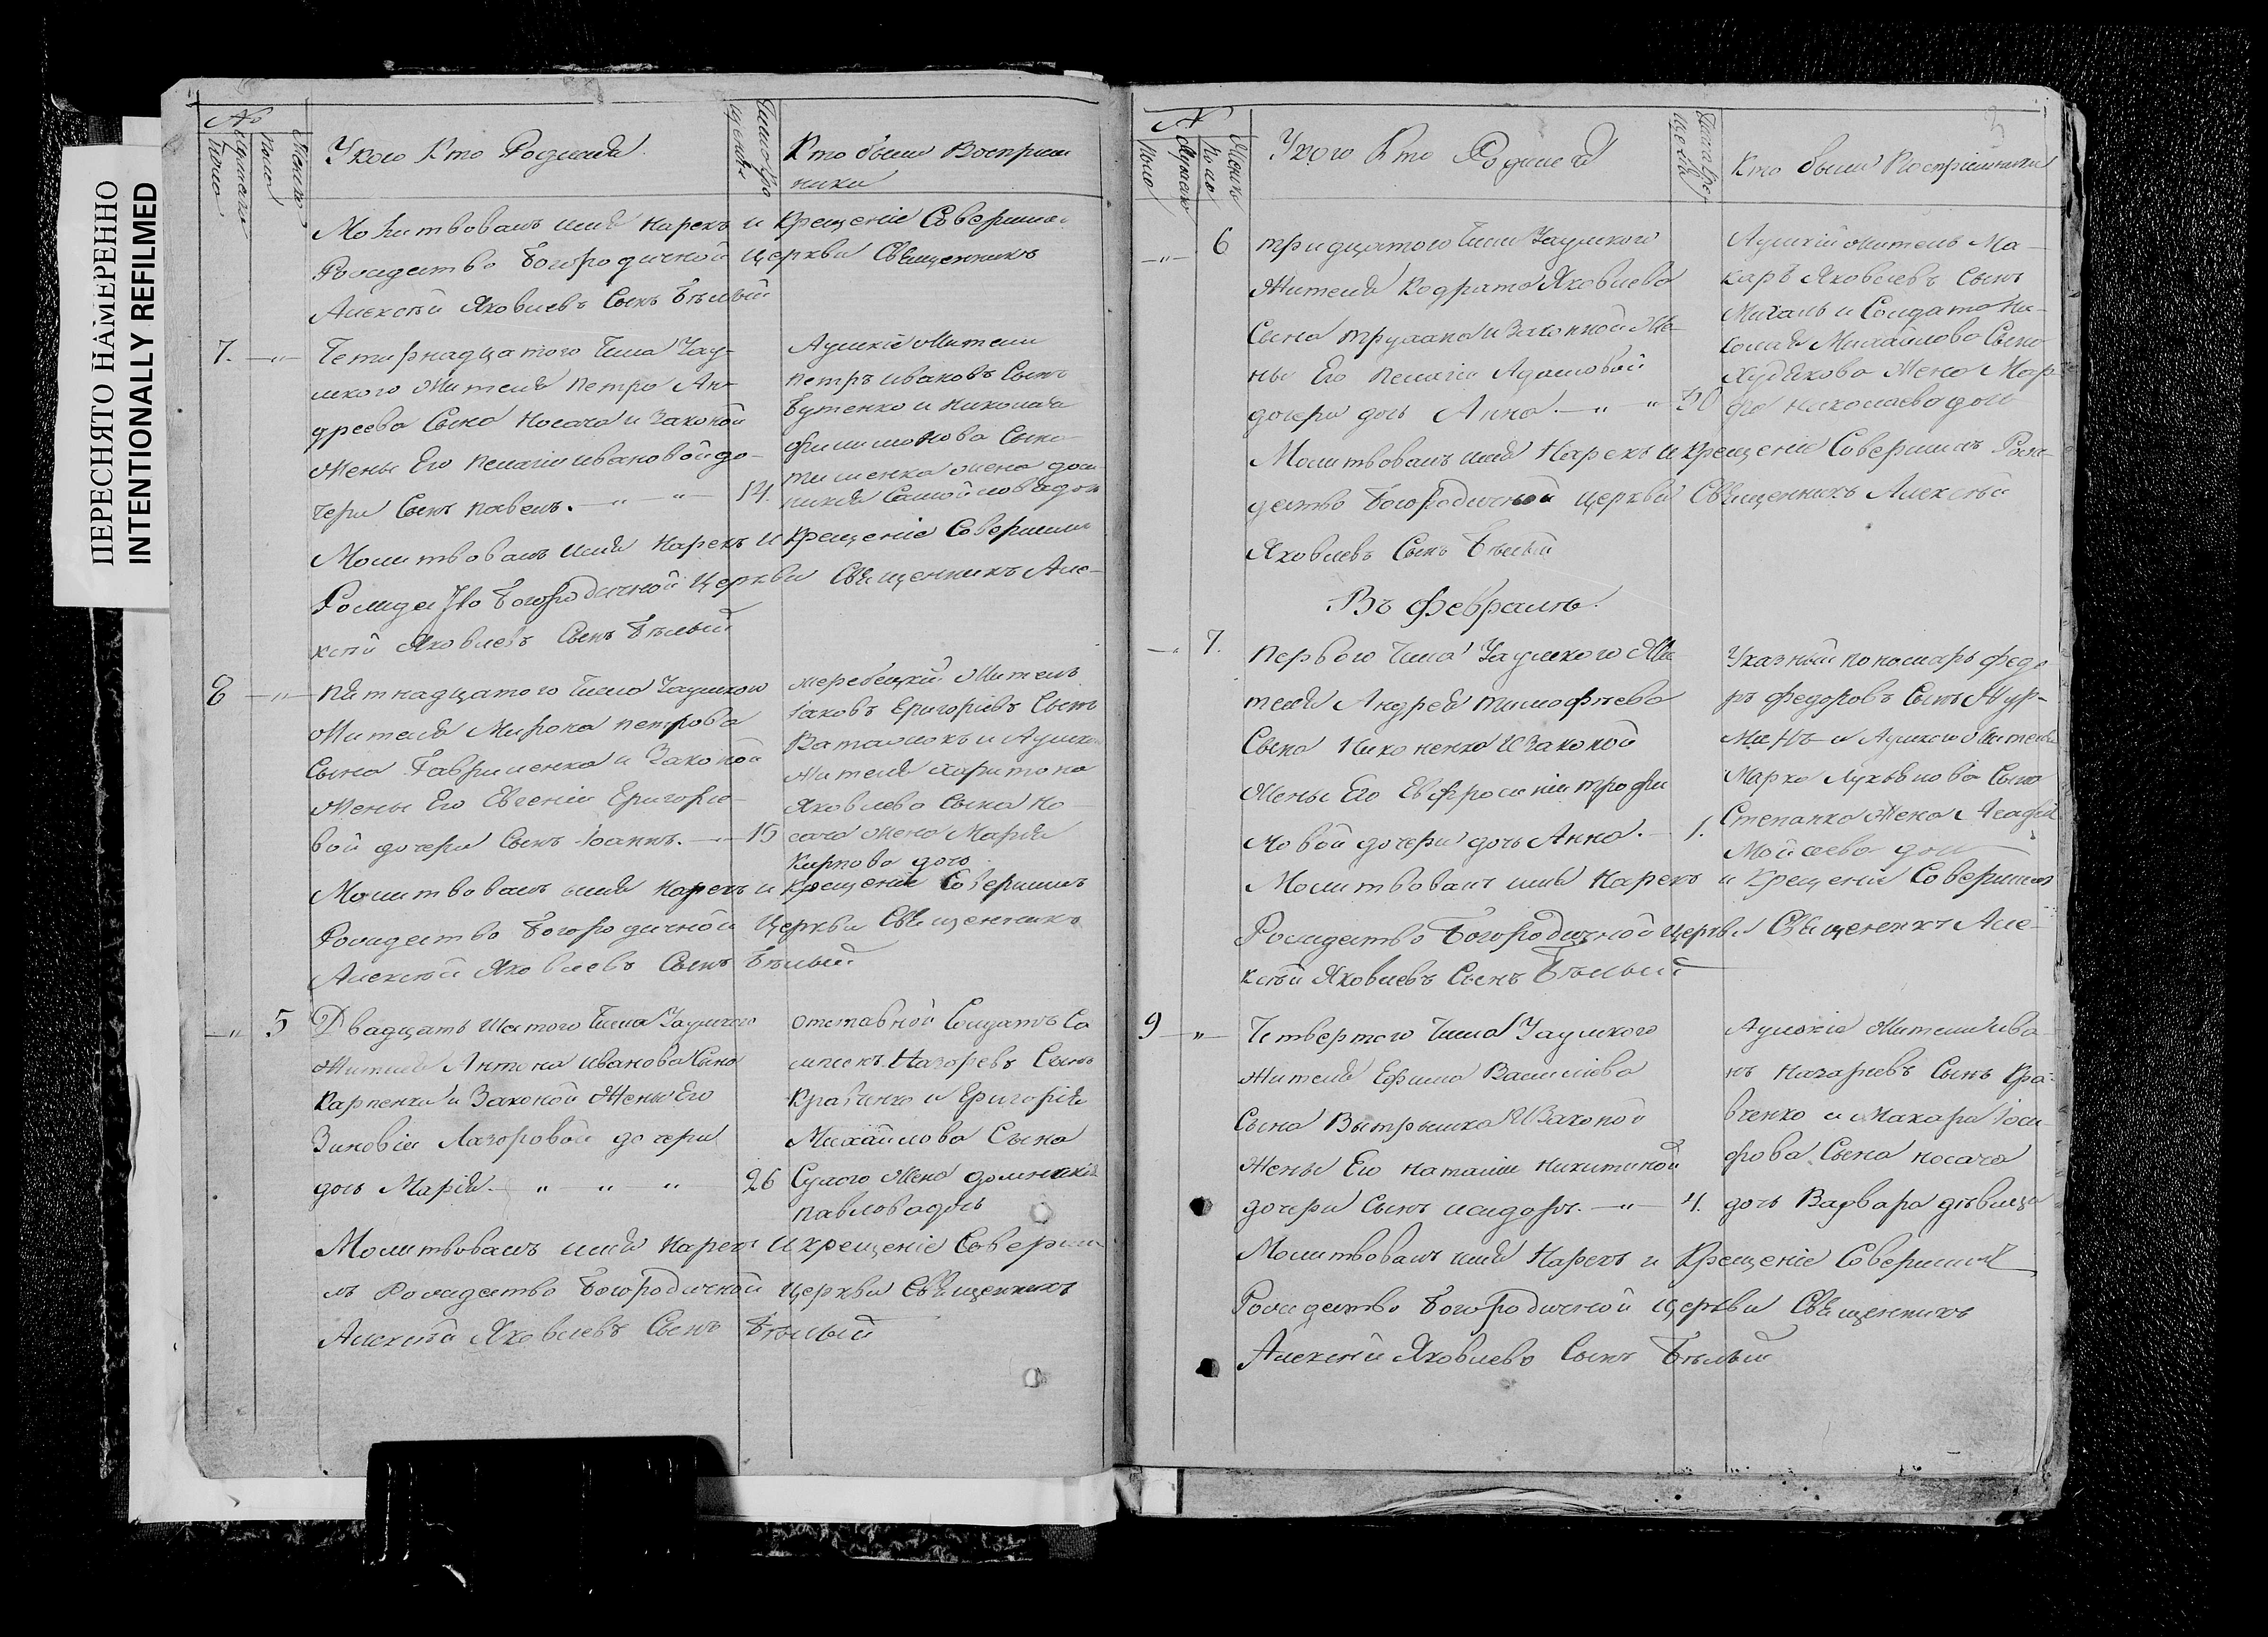 ПЕРЕСНЯТО НАМЕРЕННО
INTENTIONALLY REFILMED
№
Мужеска
полу
Женска
полу
У кого Кто Родился
Число кре
щенія
Кто были Восприем
ники
Молитвовалъ имя нарекъ и Крещеніе Совершил
Рождество Богородичной Церкви Священникъ
Алексѣй Яковлевъ Сынъ Бѣлый
7. —„— Четырнадцатого Числа Жау-
лжого Жителя Петра Ан-
дреева Сына Носача и Законой
Жены Его Пелагіи Ивановой до-
чери Сынъ Павелъ. — „ — „ — 14.
Жители
Петръ Ивановъ Сынъ
Бутенко и Николая
Филимонова Сына
Тименка жена дом
никія Самойлова дочь
Молитвовалъ имя нарекъ и Крещеніе Совершилъ
Рождество Богородичной Церкви Священникъ Але-
ксѣй Яковлевъ Сынъ Бѣлый
8 —„— Пятнадцатого Числа
Жителя Мирона Петрова
Сына Гавриленка и Законой
Жены Его Евгеніи Григорье-
вой дочери Сынъ Іоаннъ. — „ — 15
Житель
Іаковъ Григоріевъ Сынъ
и
Жителя Харитона
Яковлева Сына Но
сача Жена Марія
Карпова дочь
Молитвовалъ имя нарекъ и Крещеніе Совершилъ
Рождество Богородичной Церкви Священникъ
Алексѣй Яковлевъ Сынъ Бѣлый
—„ 5 Двадцать Шестого Числа
Жителя Антона Иванова Сына
Карпенки и Законой Жены Его
Зиновіи Лазоровой дочери
дочь Марія. — „ „ „ 26
Отставной Солдатъ
Назаревъ Сынъ
Кравченко и Григорія
Михайлова Сына
Сулого Жена Доминикія
Павлова дочь
Молитвовалъ имя нарекъ и крещеніе Соверши
лъ Рождество Богородичной Церкви Священникъ
Алексѣй Яковлевъ Сынъ Бѣлый
3
№
Мужеска
полу
Женска
полу
У кого Кто Родился
Число кре
щенія
Кто были Воспріемники
—„— 6 тридцатого Числа
Жителя Кодрата Яковлева
Сына и Законной Же-
ны Его Пелагіи Адамовой
дочери дочь Анна. — „ „ 30
Житель Ма-
каръ Яковлевъ Сынъ
и Солдата Ни-
колая Михайлова Сына
Худякова Жена Мар
фа Николаева дочь
Молитвовалъ имя Нарекъ и Крещеніе Совершилъ Рож-
дество Богородичной Церкви Священникъ Алексѣй
Яковлевъ Сынъ Бѣлый
Въ Февралѣ.
—„ 7. Первого Числа Же-
теля Андрея Тимофѣева
Сына Никоненка и Законой
Жены Его Евфросиніи Трофи
мовой дочери дочь Анна. — 1.
Указный Пономарь Федо
ръ Федоровъ Сынъ
и Жителя
Марка Лукьянова Сына
Степанка Жена Агафія
Мойсеева дочь
Молитвовалъ имя Нарекъ и Крещеніе Совершилъ
Рождество Богородичной Церкви Священникъ Але-
ксѣй Яковлевъ Сынъ Бѣлый
9 —„— Четвертого Числа
Жителя Ефима Василіева
Сына и Законой
Жены Его Наталіи Никитиной
дочери Сынъ Исидоръ. — „ — 4.
Жители Ива-
нъ Назаріевъ Сынъ Кра-
вченко и Макара Іоси-
фова Сына Носача
дочь Варвара дѣвица
Молитвовалъ имя Нарекъ и Крещеніе Совершилъ
Рождество Богородичной Церкви Священникъ
Алексѣй Яковлевъ Сынъ Бѣлый